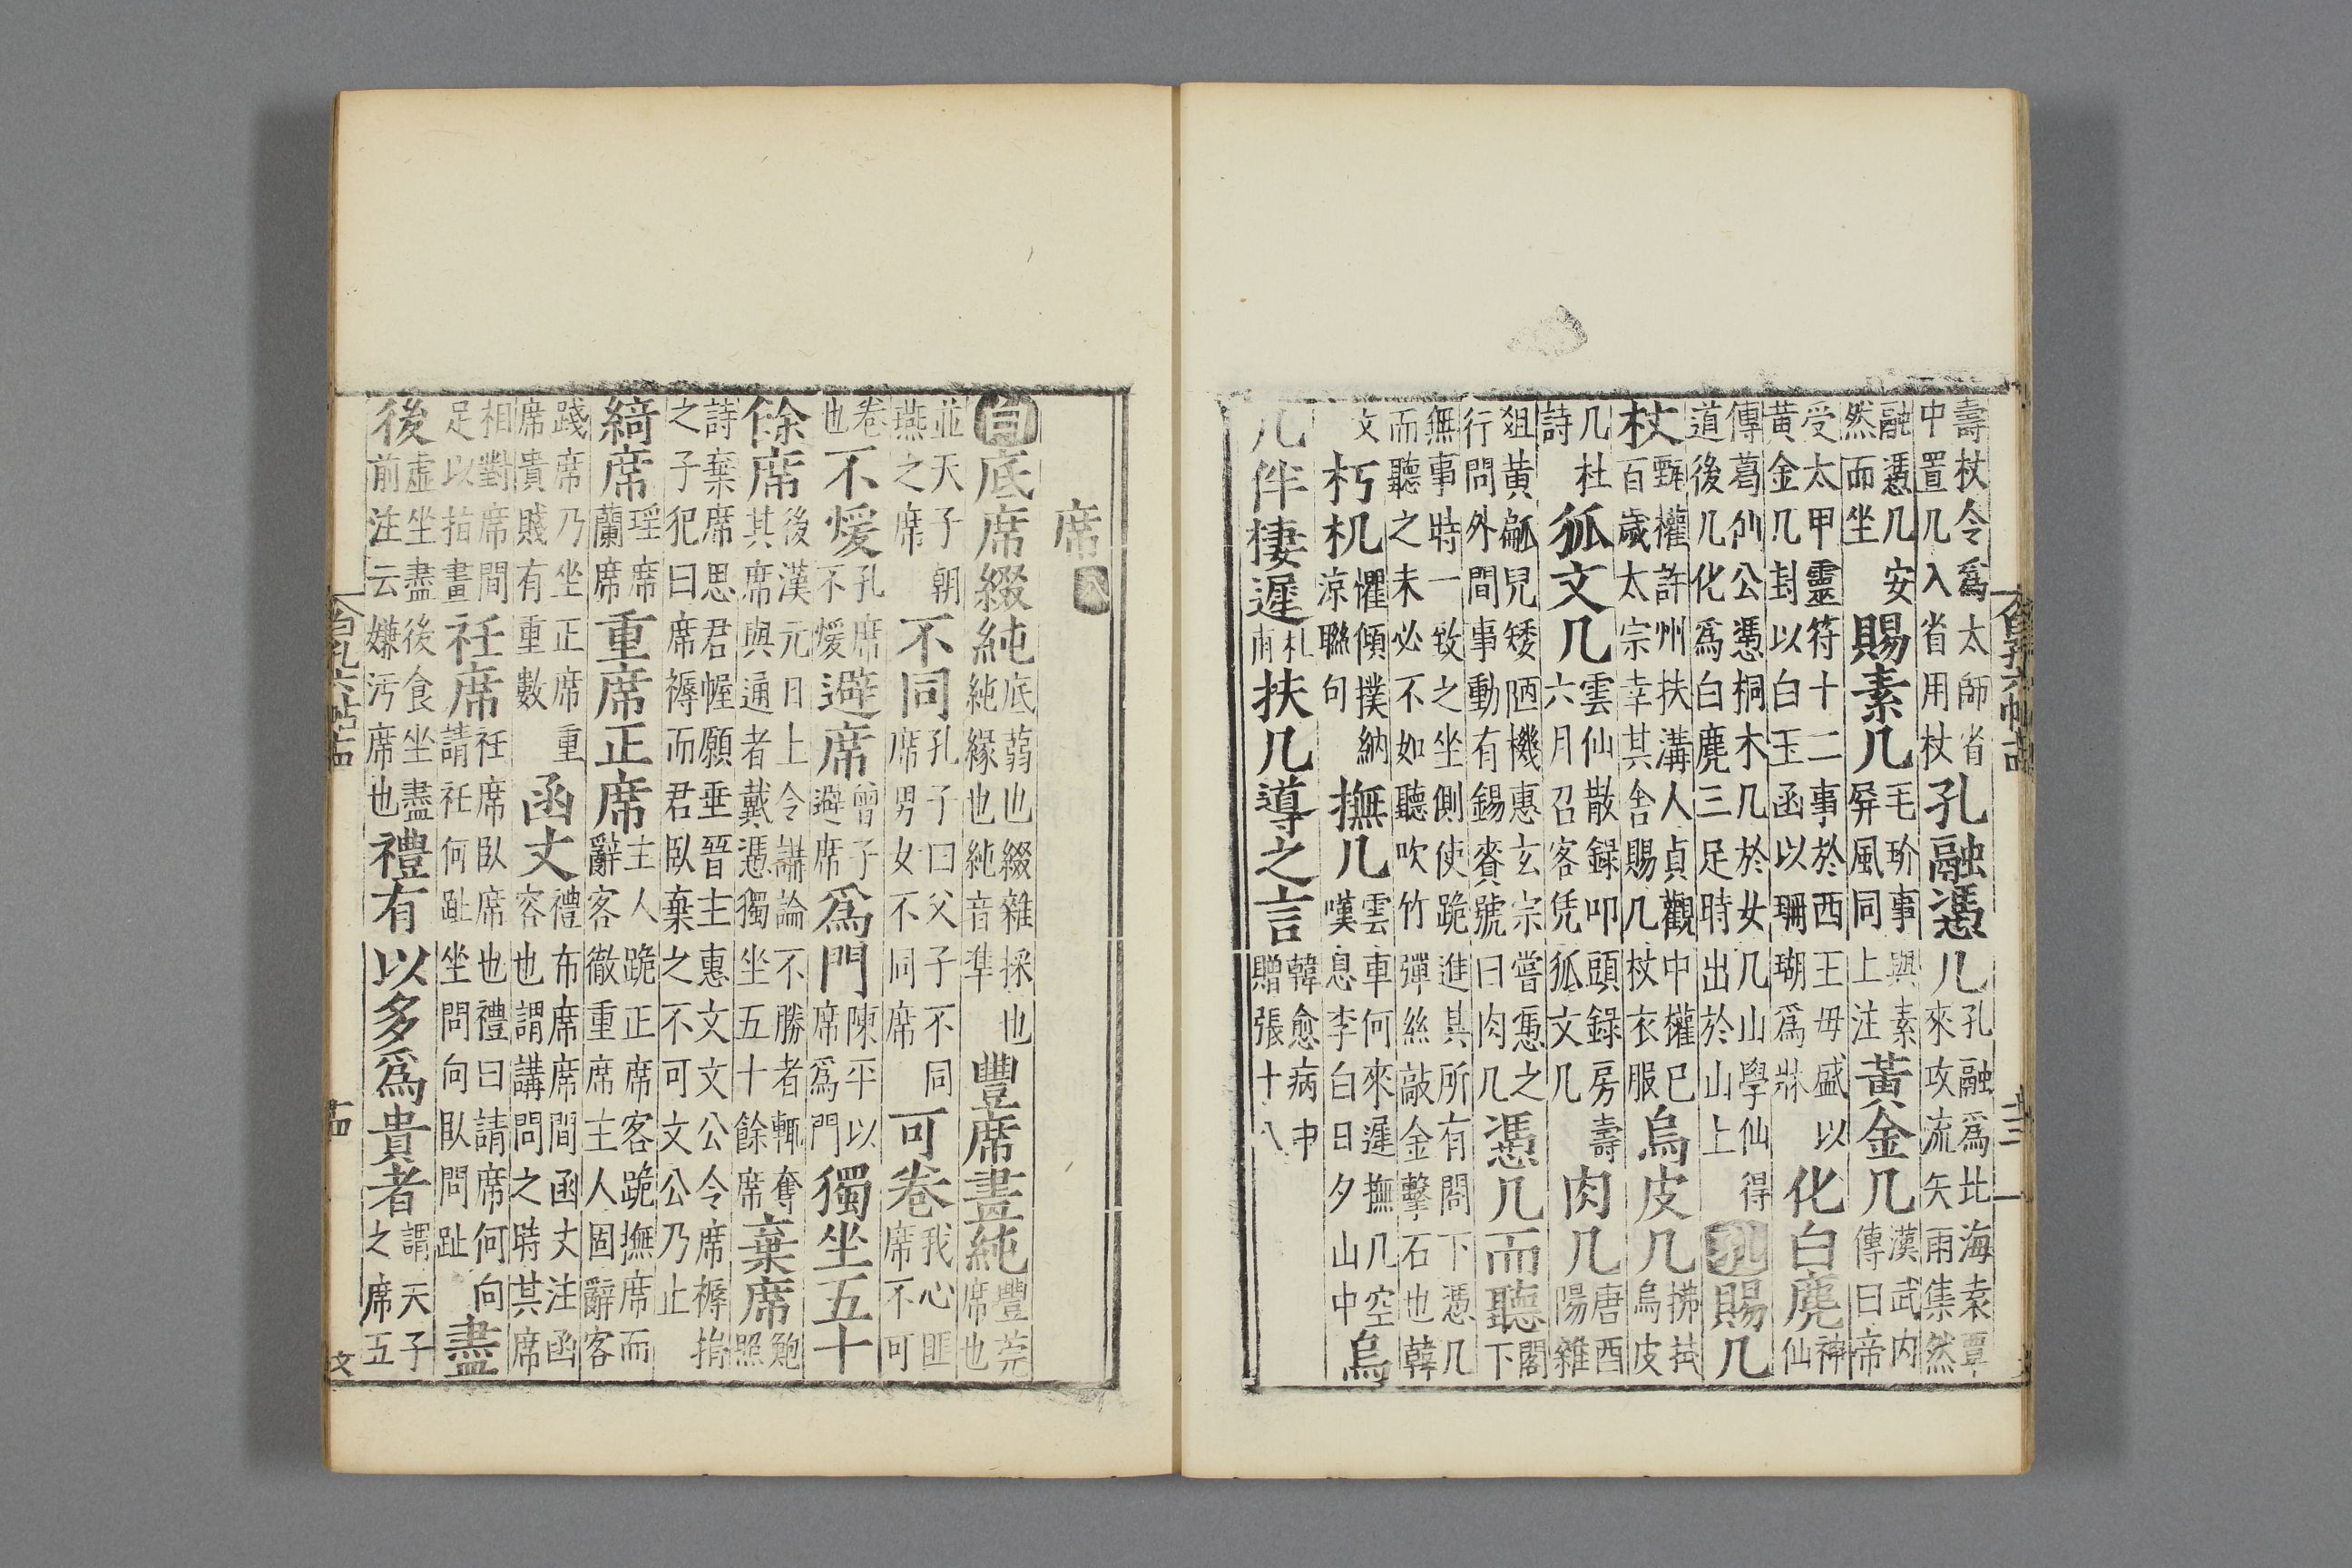 壽杖令爲太師省中置几入省用杖孔融憑几孔融爲北海袁覃來攻流矢雨集然
融憑几安然而坐賜素几毛玠事與素屏風同上注黃金几漢武内傳曰帝
受太甲靈符十二事於西王母盛以黃金几封以白玉函以珊瑚爲牀化白麂神仙
傳葛仙公憑桐木几於女几山學仙得道後几化爲白麂三足時出於山上孔賜几
杖甄權許州扶溝人貞觀中權已百歲太宗幸其舍賜几杖衣服烏皮几拂拭烏皮
几杜詩狐文几雲仙散録叩頭録房壽六月召客凭狐文几肉几唐酉陽雜
俎黃𤬛兒矮陋機惠玄宗嘗憑之行問外間事動有錫賚號曰肉几憑几而聽閣下
無事時一致之坐側使跪進其所有閣下憑几而聽之未必不如聽吹竹彈絲敲金擊石也韓
文朽机懼傾撲納涼聯句撫几雲車何來遲撫几空嘆息李白日夕山中烏
几伴棲遲札甫扶几導之言韓愈病中贈張十八
席八
白底席綴純底蒻也綴雜採也純緣也純音準豐席畫純豐莞席也
並天子朝燕之席不同孔子曰父子不同席男女不同席可卷我心匪席不可
卷也不煖孔席不煖避席曾子避席爲門陳平以席爲門獨坐五十
餘席後漢元日上令講論不勝者輒奪其席與通者戴憑獨坐五十餘席棄席鮑照
詩棄席思君幄願垂晉主惠文文公令席褥捐之子犯曰席褥而君臥棄之不可文公乃止
綺席瑶席蘭席重席正席主人跪正席客跪撫席而辭客徹重席主人固辭客
踐席乃坐正席重席貴賤有重數函丈禮布席席間函丈注函容也謂講問之時其席
相對席間足以指畫衽席衽席臥席也禮曰請席何向請衽何趾坐問向臥問趾盡
後虛坐盡後食坐盡前注云嫌汚席也禮有以多爲貴者謂天子之席五